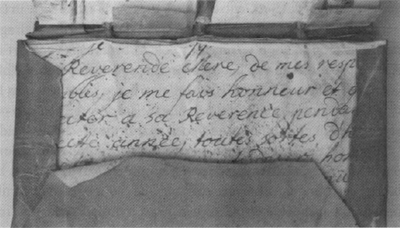 Reverende Mere, de mes resp
bles, je me fais honneur et
a sa Reverence, penda
année, toutes sortes d